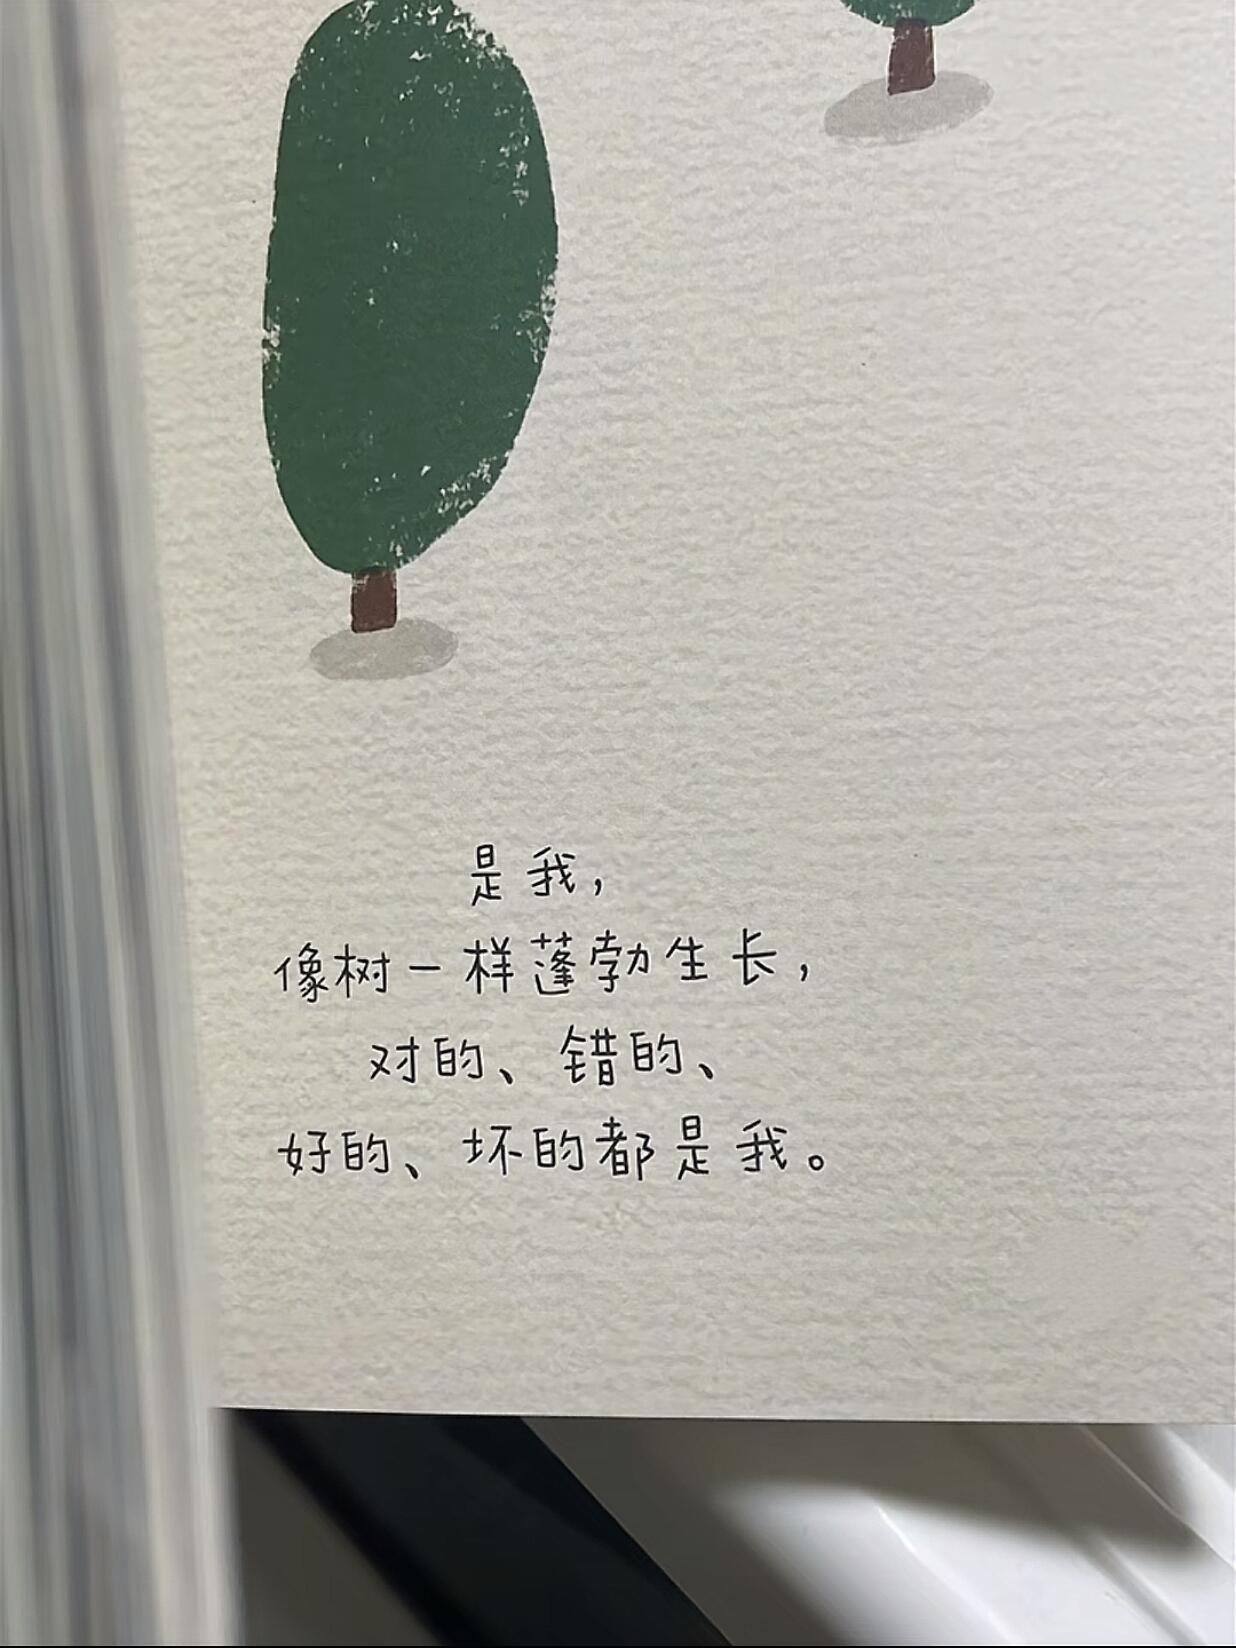 是我，
像树一样蓬勃生长，
对的、错的、
好的、坏的都是我。